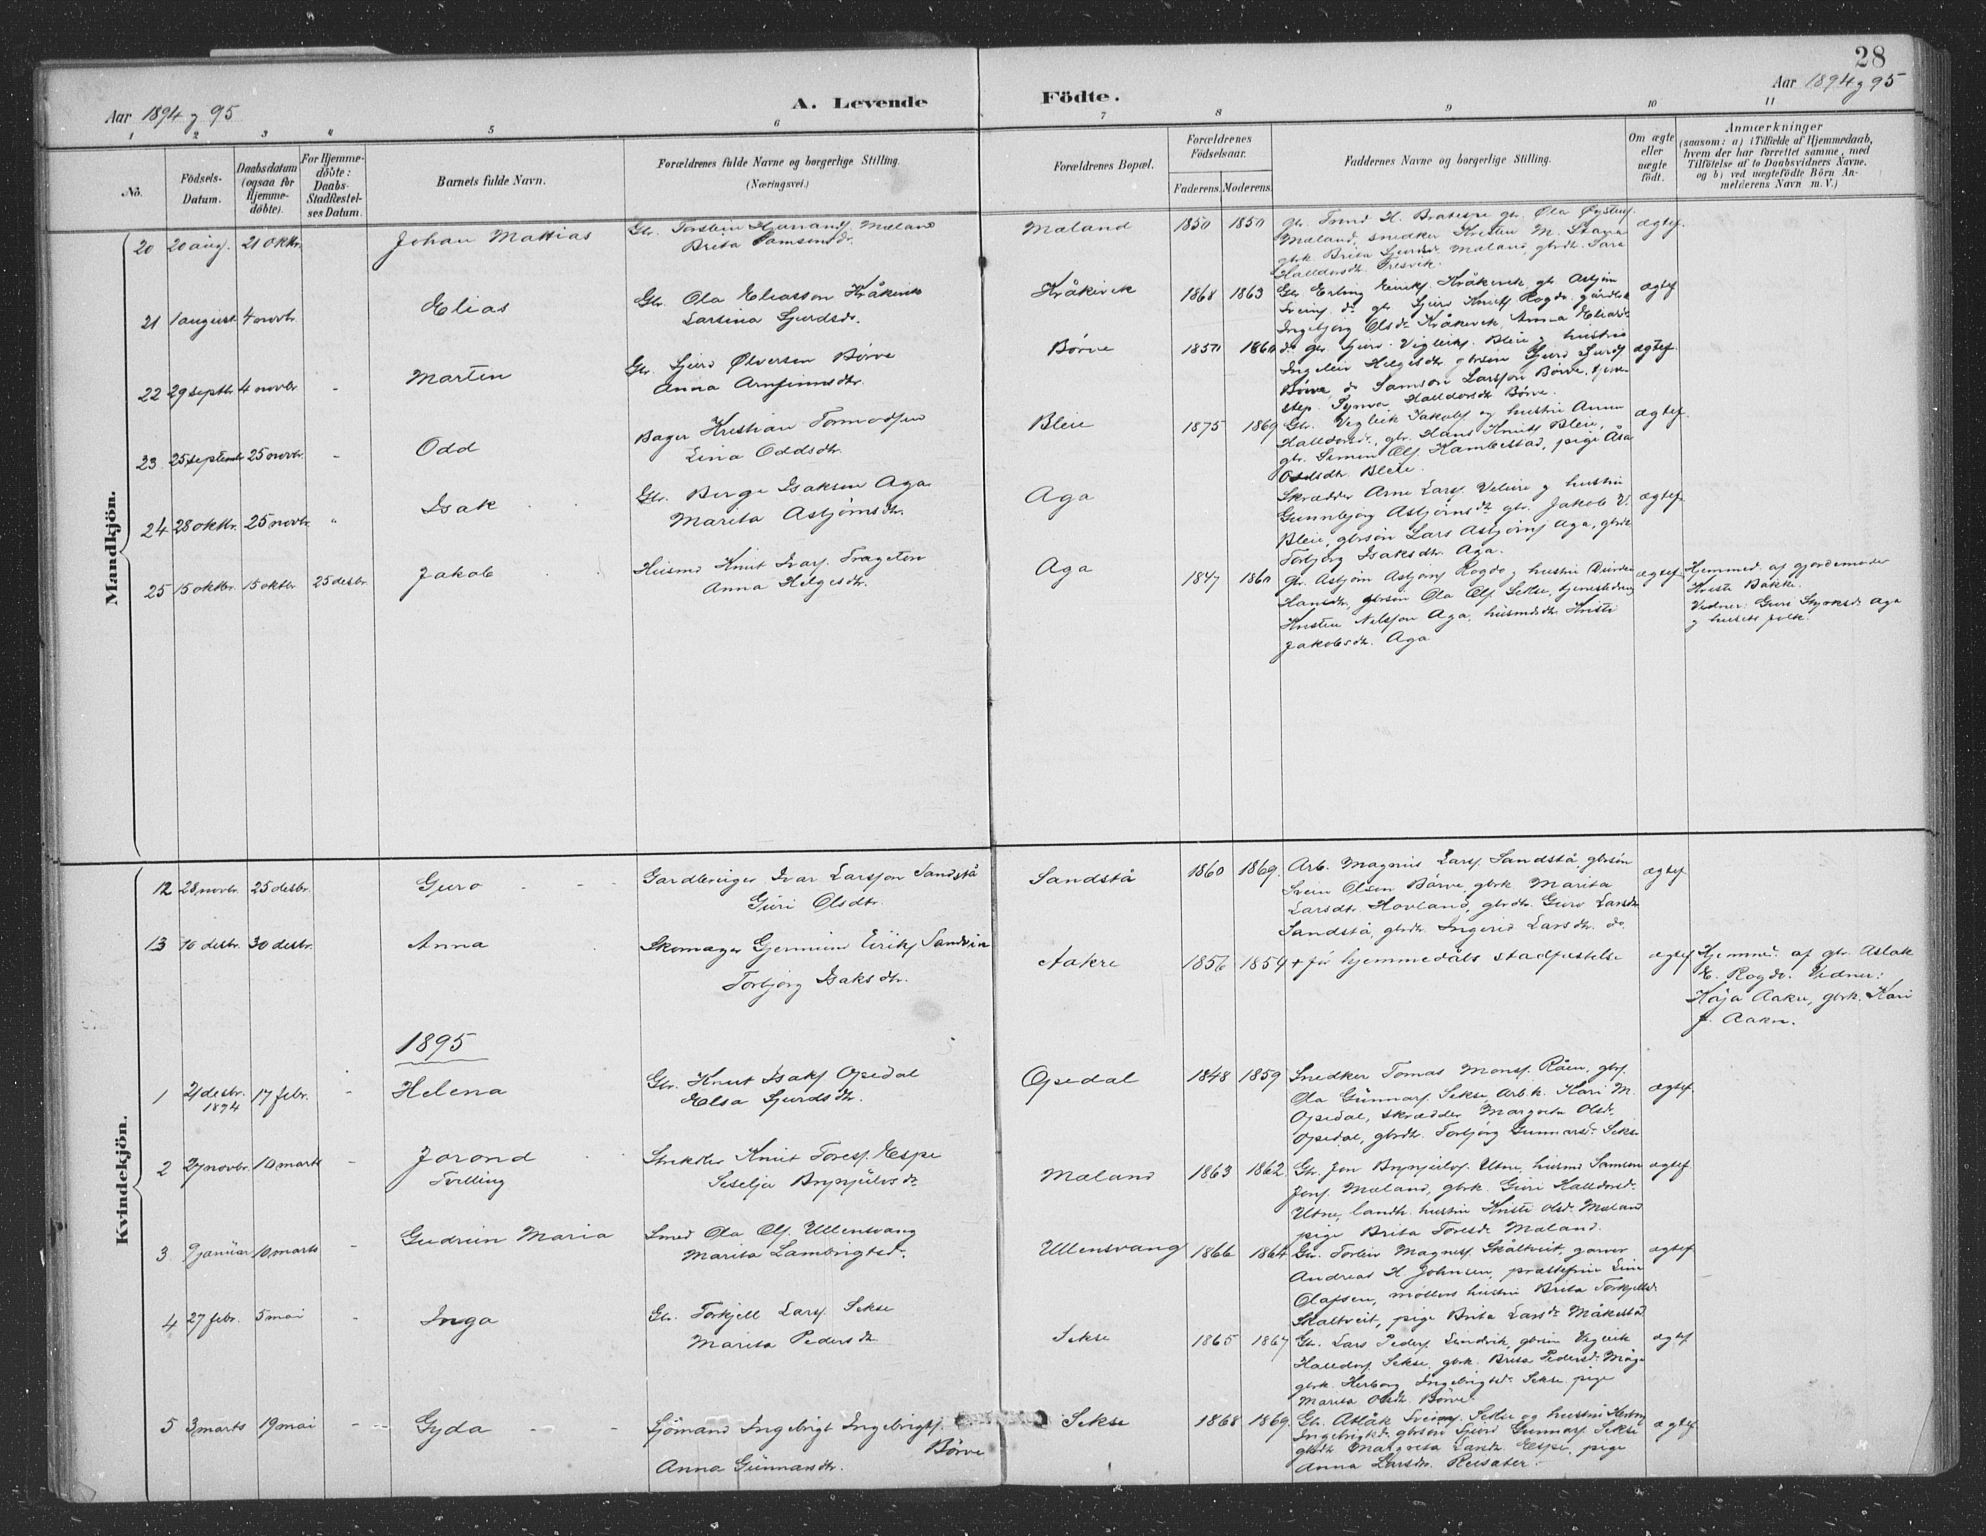 28
Aar 1894 og 95
A. Levende Födte.
Aar 1894 og 95
1 2 3 4 5 6 7 8 9 10 11
No.
Födsels-Datum.
Daabsdatum (ogsaa for Hjemme-döbte).
For Hjemme-döbte: Daabs-Stadfæstel-ses Datum.
Barnets fulde Navn.
Forældrenes fulde Navne og borgerlige Stilling.
(Næringsvei.)
Forældrenes Bopæl.
Forældrenes Födselsaar.
Faderens. Moderens.
Faddernes Navne og borgerlige Stilling.
Om ægte eller uægte födt.
Anmærkninger
(saasom: a) i Tilfælde af Hjemmedaab, hvem der har forrettet samme, med Tilföielse af to Daabsvidners Navne, og b) ved uægtefödte Börn Anmelderens Navn m. V.)
Mandkjön.
20 20 aug. 21 oktbr. Johan Mattias
Gbr. Torstein Hjarrands. Mæland
Brita Samsonsdr.
Mæland 1850 1850
gbr. Trond H. Bratespe gbr. Ola Øystens.
Mæland, snedker Kristen M. Stana
gbk. Brita Sjursdr. Mæland, gbrdr. Sara
Halldorsdr. Fresvik.
ægtef.
21 1 august 4 novbr. Elias
Gbr. Ola Eliasson Kråkevik
Larsina Sjurdsdr.
Kråkevik 1868 1863
Gbr Erling Eiriks. Kråkevik, gbr Asbjørn
Sveins. do gbr Sjurd Knuts. Rogde,
Ingebjørg Olsdr Kråkevik, Anna Eliasdr.
ægtef
22 29 septbr 4 novbr - Marten
Gbr. Sjurd Ølversen Børve
Anna Arnfinnsdtr.
Børve 1850 1860
do gbr Sjurd Vigleiks. Bleie og hustru
Ingeleiv Helgesdtr gbrsøn Sjurd Sjurds.
Børve do Samson Larsson Børve, tjen
step. Synva Halldorsdtr Børve.
ægtef.
23 25 septembr 25 novbr. - Odd
Bager Kristian Tormodsen
Lina Oddsdtr.
Bleie 1875 1869
Gbr. Vigleik Jakobs. og hustru Anna
Halldorsd., gbr. Hans Knuts. Bleie,
gbr. Simon Ols. Hambestad, pige Åsa
Oddsdtr. Bleie.
ægtef.
24 28 oktbr. 25 novbr. " Isak
Gbr. Berge Isaksen Aga
Marita Asbjørnsdtr.
Aga
Skrædder Arne Lars. Velure og hustru
Gunnbjørg Asbjørnsdr gbr. Jakob V.
Bleie, gbrsøn Lars Asbjørns. Aga, gbrdr
Torbjørg Isaksdtr. Aga.
ægtef.
25 15 oktbr. 15 oktbr 25 desbr. Jakob
Husmd Knut Ivars. Trageton
Anna Helgesdtr.
Aga 1847 1860
Gbr. Asbjørn Asbjørns. Rogde og hustru Guroda
Hansdtr, gbrsøn Ola Ols. Sekse, tjenestedreng
Kristen Nilsson Aga, husmdsdtr Kristi
Jakobsdtr. Aga
ægtef.
Hjemmed. af gjordemoder
Kristi Bakke.
Vidner: Guri Styrksdr. Aga
og husets folk.
Kvindekjön.
12 28 novbr. 25 desbr. Guro - -
Gardbruger Ivar Larsson Sandstå
Guri Olsdtr.
Sandstå 1860 1869.
Arb. Magnus Lars. Sandstå, gbrsøn
Svein Olsen Børve, gbrk. Marita
Larsdtr. Hovland, gbrdtr. Guro Larsdtr
Sandstå, gbrdtr. Ingerid Larsdtr. do.
ægtef
13 10 desbr. 30 desbr. Anna
Skomager Gjermund Eiriks. Sandvin
Torbjørg Isaksdtr.
Aakre 1856 1854
+ før hjemmedåbs stadfæstelse
ægtef
Hjemmed. af gbr. Aslak
E. Rogde. Vidner:
Kaja Aakre, gbrk. Kari
J. Aakre.
1895
1 21 desbr. 1894 17 febr. - Helena
Gbr. Knut Isaks. Opedal
Elsa Sjurdsdtr.
Opedal 1848 1859
Snedker Tomas Mons. Råen, gbr.
Ola Gunnars. Sekse Arb.k. Kari M.
Opedal, skrædder Margreta Olsd.
Opedal, gbrdtr. Torbjørg Gunnarsd. Sekse
ægtef.
2 27 novbr. 10 marts - Jorond
Tvilling
Knut Tores. Espe
Seselja Brynjulvsdr
Mæland 1863 1862
Gbr. Jon Brynjulvs. Utne, husmd Samson
Jons. Mæland, gbrk. Guri Halldorsd.
Utne, landh. hustru Kristi Olsd. Mæland
pige Brita Toresd. Mæland.
ægtef
3 9 januar 10 marts - Gudrun Maria
Smed Ola Ols. Ullensvang
Marita Lambrigtsd.
Ullensvang 1866 1864
Gbr. Torleiv Magnes. Skåltveit, garver
Andreas H Johnsen, præstefrue Lina
Olafsen, møllers hustru Brita Torkjellsd.
Skåltveit, pige Brita Larsdr Måkestad
ægtef.
4 27 febr. 5 mai - Inga
Gbr. Torkjell Lars. Sekse
Marita Pedersdr
Sekse 1865 1867
Gbr. Lars Peders. Lindvik, gbrsøn Vigleik
Halldors. Sekse, gbrk. Brita Pedersd. Måge
gbrk. Herborg Ingebrigtsd. Sekse, pige
Marita Olsdtr. Børve.
ægtef
5 3 marts 19 mai - - Gyda - -
Sjømand Ingebrigt Ingebrigts.
Børve
Anna Gunnarsdtr.
Sekse 1868 1869.
Gbr. Aslåk Sveins. Sekse og hustru Herborg
Ingebrigtsdr gbrsøn Sjurd Gunnars. Sekse
gbrdtr Margreta Larsdr. Espe, pige
Anna Larsdtr. Reisæter.
ægtef